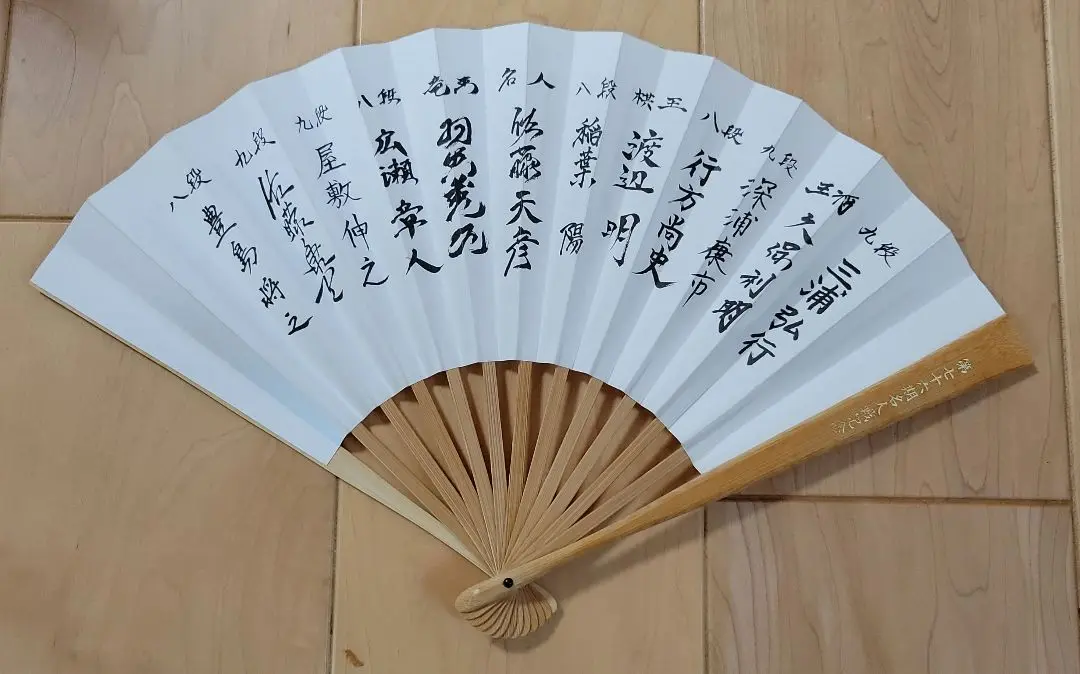 九段 三浦弘行
王将 久保利明
九段 深浦康市
八段 行方尚史
棋王 渡辺明
八段 稲葉陽
名人 佐藤天彦
竜王 羽生善治
八段 広瀬章人
九段 屋敷伸之
九段 佐藤康光
八段 豊島将之
第七十六期名人戦記念